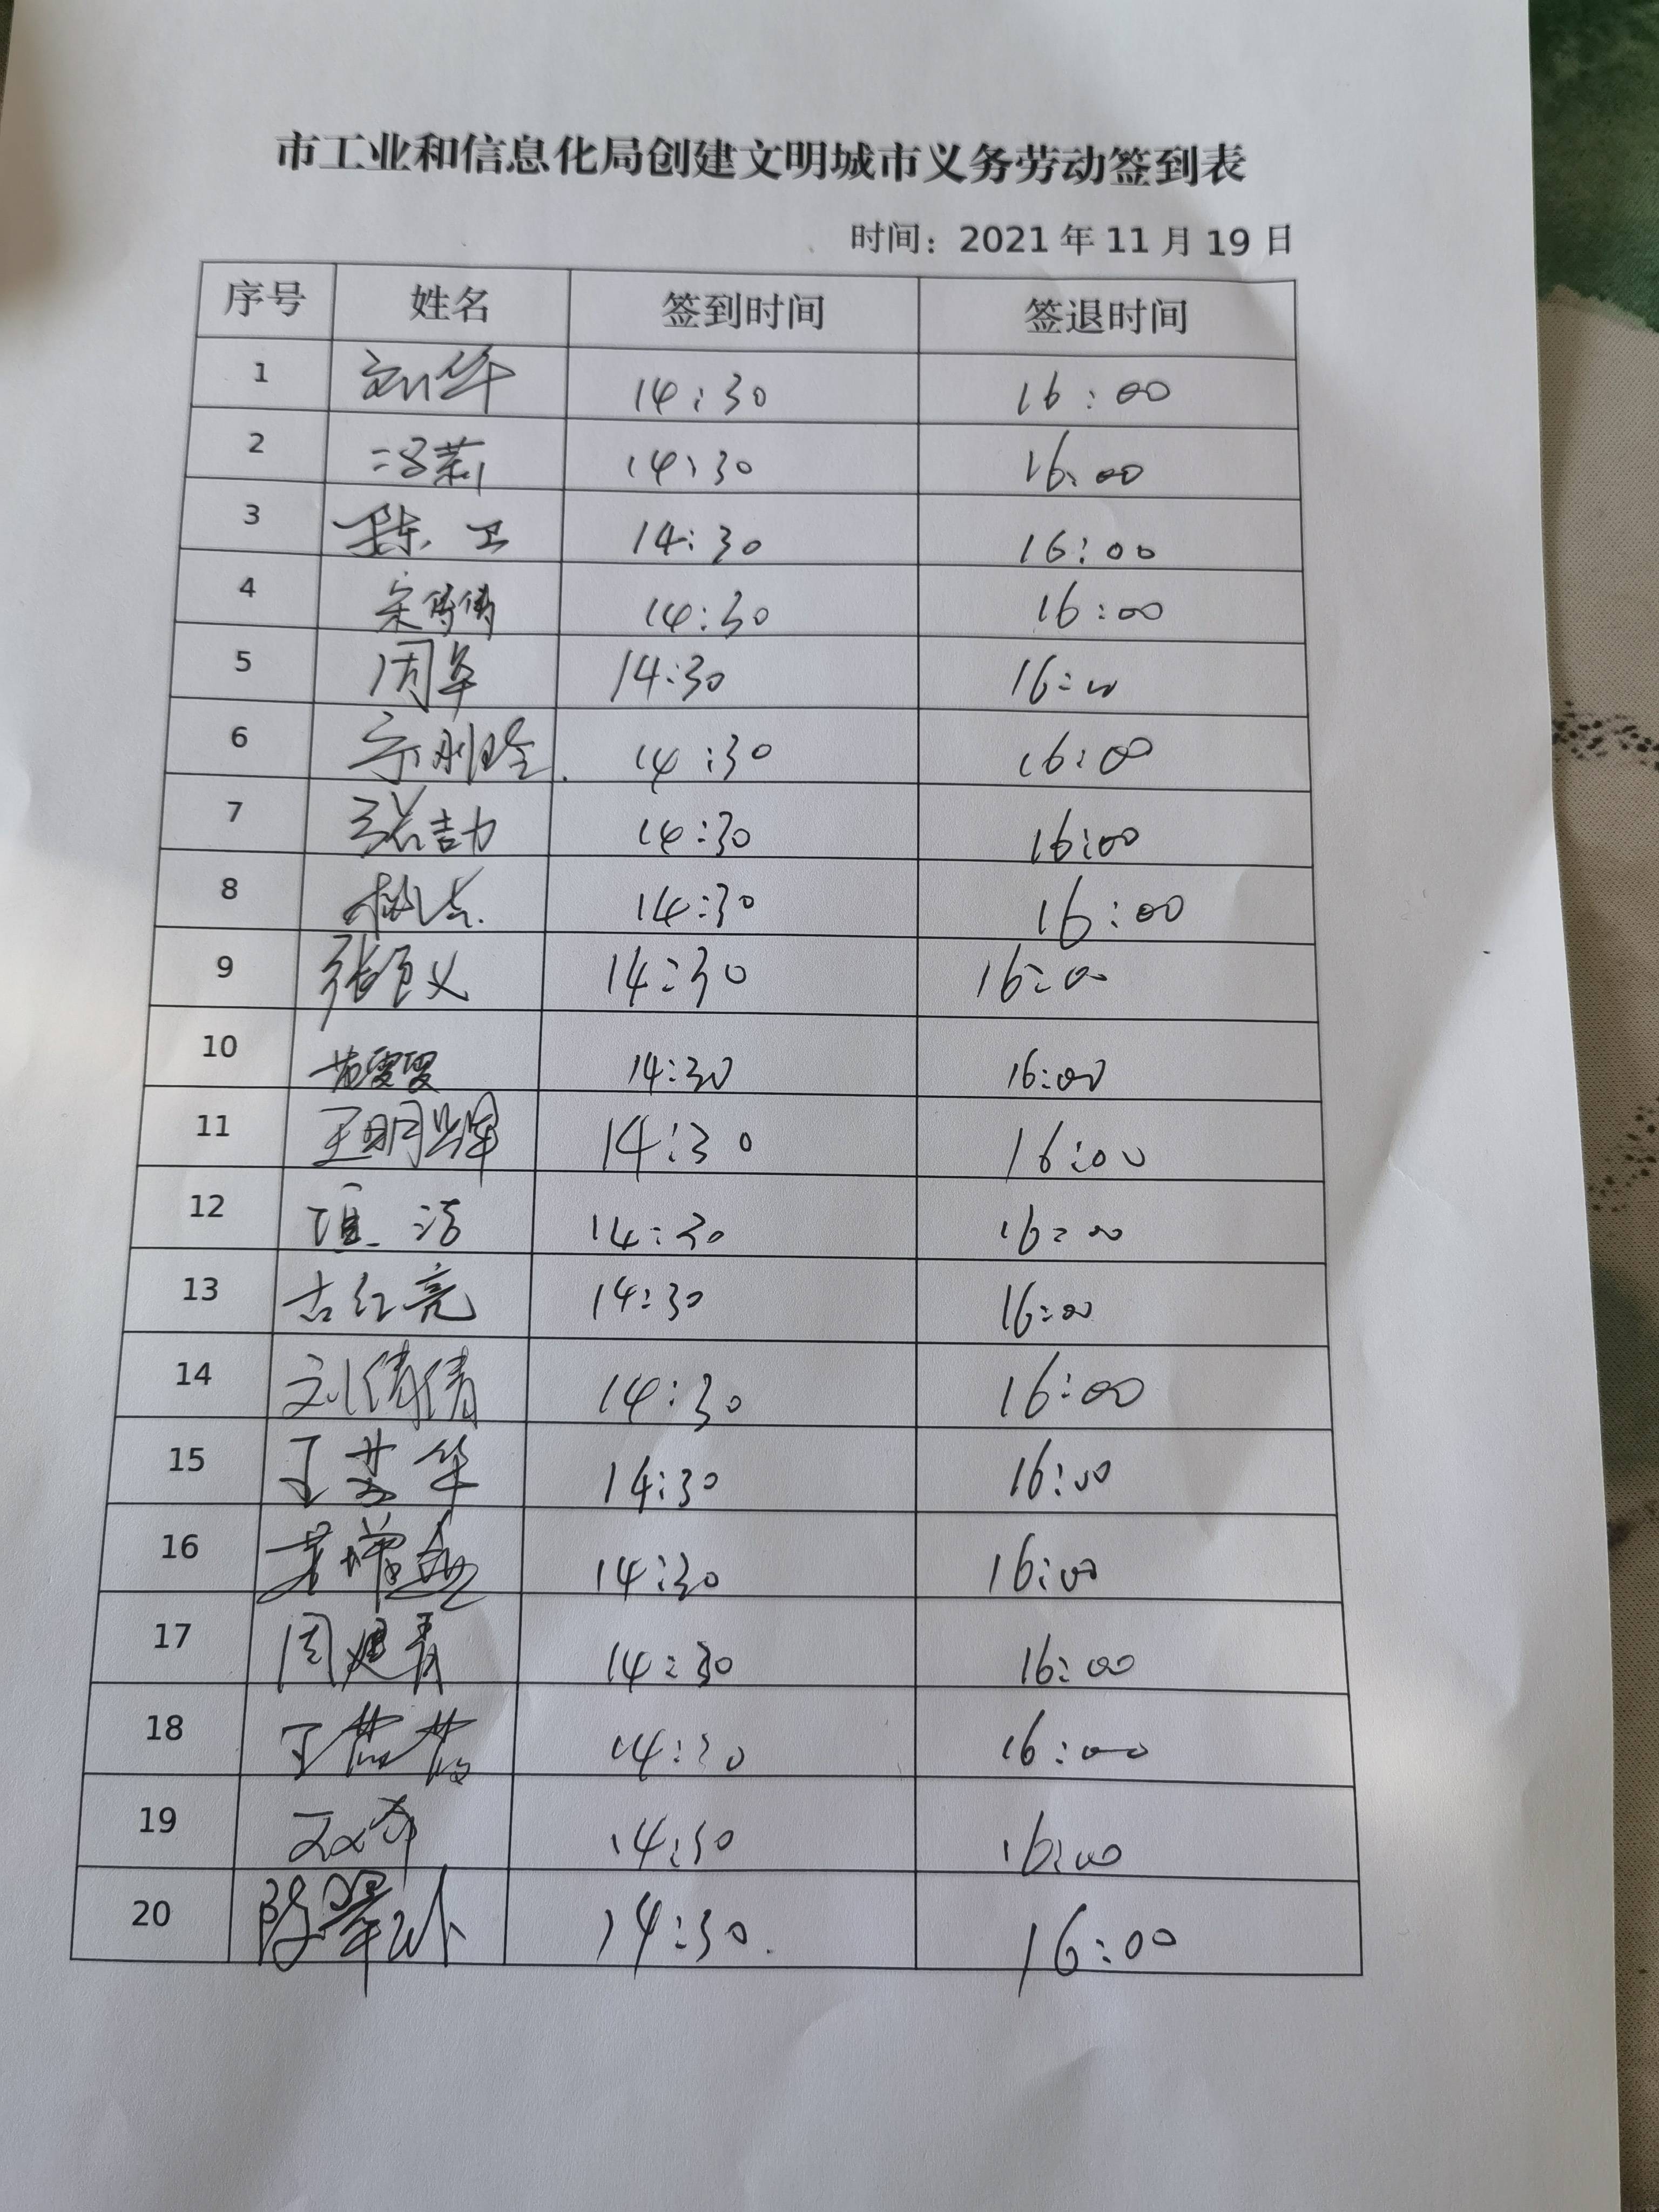 市工业和信息化局创建文明城市义务劳动签到表
时间：2021年11月19日
序号 姓名 签到时间 签退时间
1 刘华 14:30 16:00
2 冯莉 14:30 16:00
3 程东卫 14:30 16:00
4 宋倩倩 14:30 16:00
5 周军 14:30 16:00
6 14:30 16:00
7 14:30 16:00
8 14:30 16:00
9 张良义 14:30 16:00
10 黄雯雯 14:30 16:00
11 王明辉 14:30 16:00
12 洁 14:30 16:00
13 古红亮 14:30 16:00
14 刘倩倩 14:30 16:00
15 王慧华 14:30 16:00
16 14:30 16:00
17 周建青 14:30 16:00
18 14:30 16:00
19 14:30 16:00
20 14:30 16:00